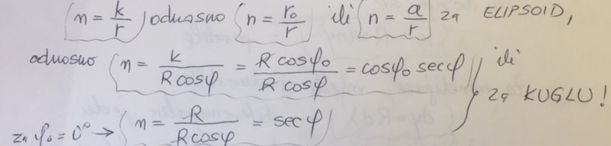 (n = k/r) odnosno (n = r₀/r) ili (n = a/r) za ELIPSOID,
odnosno (n = k/(R cosφ) = (R cosφ₀)/(R cosφ) = cosφ₀ secφ) ili
za KUGLU!
za φ₀ = 0° → (n = R/(R cosφ) = secφ)